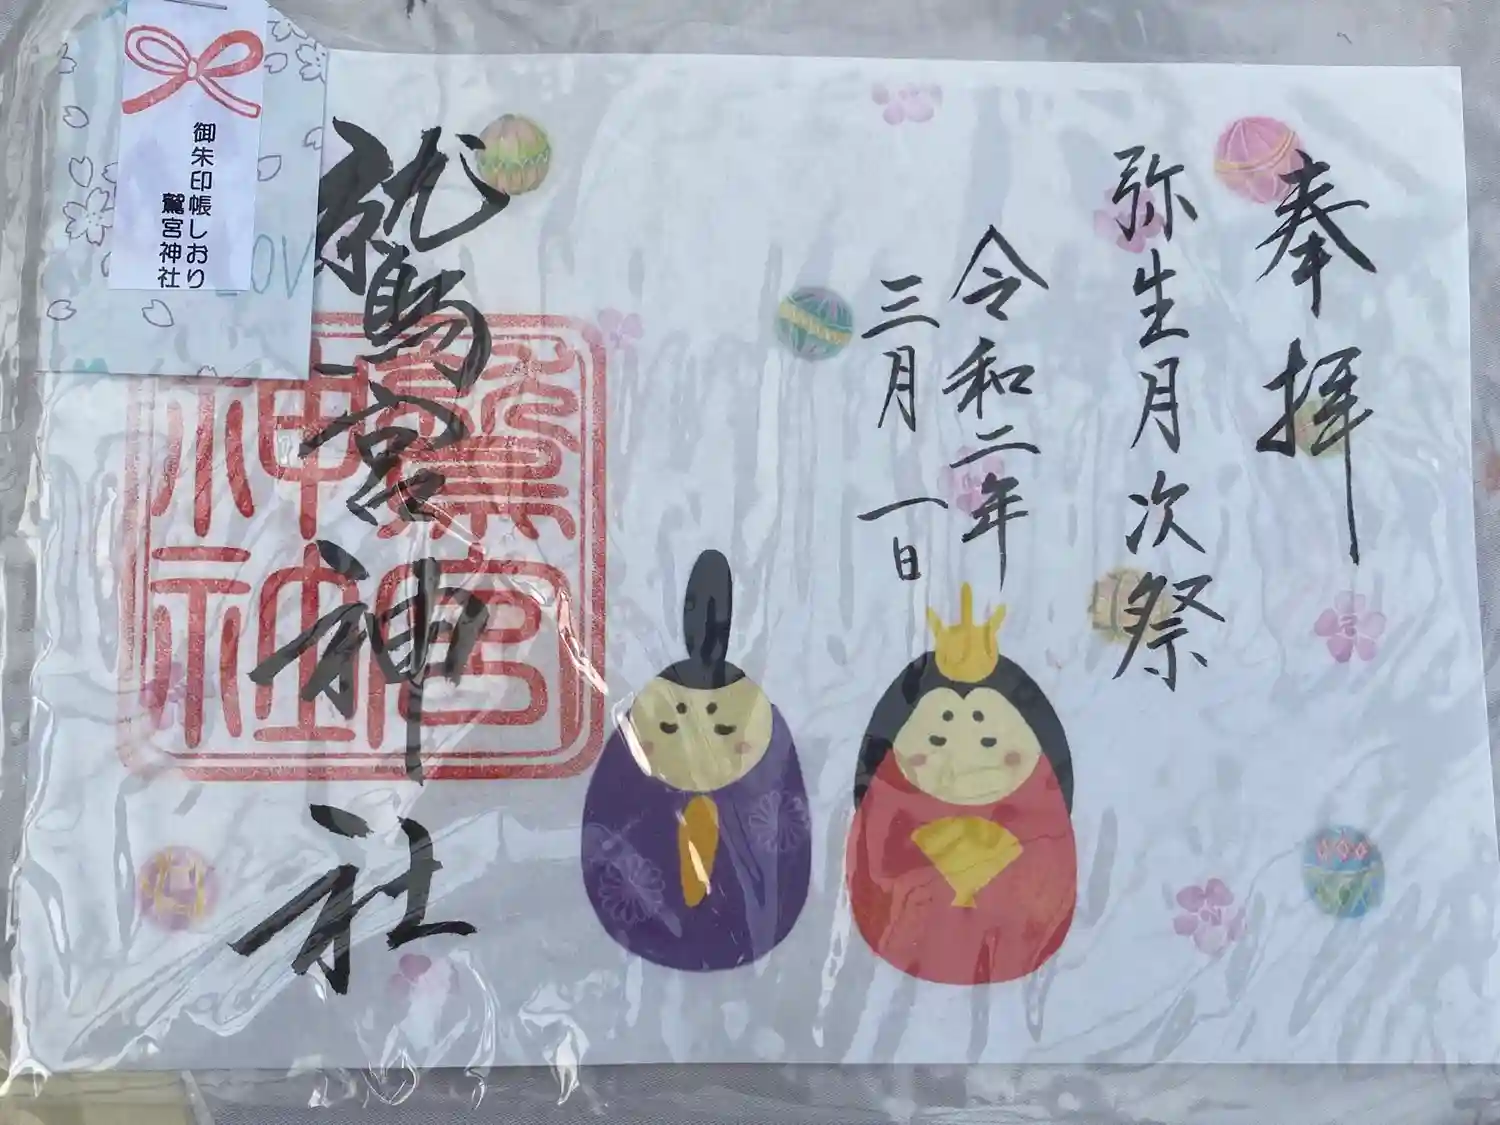 奉拝
弥生月次祭
令和二年
三月一日
鷲宮神社
鷲宮
神社
御朱印帳しおり
鷲宮神社